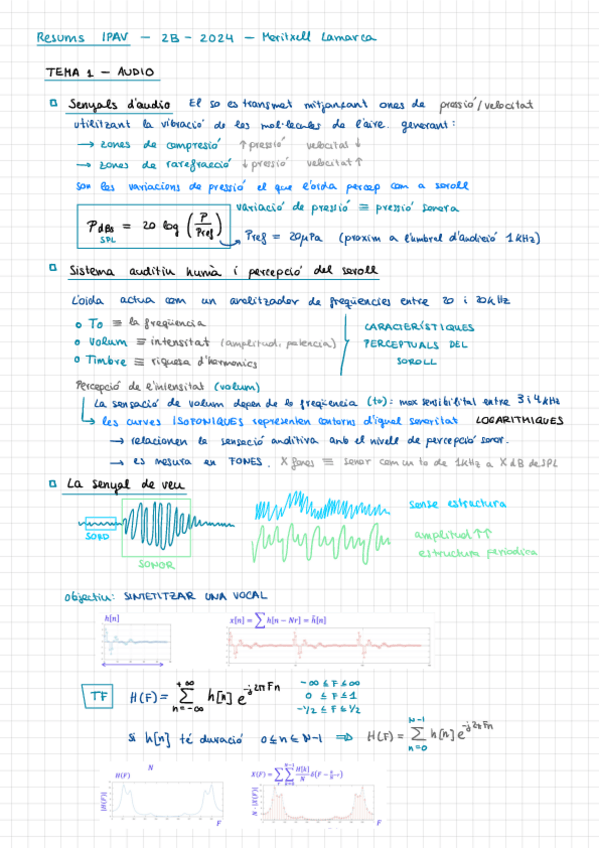 Resums IPAV - 2B - 2024 - Meritxell Lamarca
TEMA 1 - AUDIO
Senyals d'audio El so es transmet mitjançant ones de pressió/velocitat
utilitzant la vibració de les mol·lecules de l'aire. generant:
→ zones de compresió ↑pressió velocitat ↓
→ zones de rarefracció ↓pressió velocitat↑
Son les variacions de pressió el que l'oida percep com a soroll
variació de pressió ≡ pressió sonora
P dBs SPL = 20 log (P / Pref)
Pref = 20μPa (proxim a l'umbral d'audició 1KHz)
Sistema auditiu humà i percepció del soroll
L'oida actua com un analitzador de freqüencies entre 20 i 20KHz
o To ≡ la freqüencia
o Volum ≡ intensitat (amplitud, potencia)
o Timbre ≡ riquesa d'harmonics
CARACTERÍSTIQUES
PERCEPTUALS DEL
SOROLL
Percepció de l'intensitat (volum)
La sensació de volum depen de la freqüencia (to): max sensibilitat entre 3 i 4KHz
les curves ISOFONIQUES representen contorns d'igual sonoritat LOGARITMIQUES
→ relacionen la sensació auditiva amb el nivell de percepció sonor.
→ es mesura en FONES. X fones ≡ sonor com un to de 1KHz a X dB de SPL
La senyal de veu
SORD
SONOR
sense estructura
amplitud ↑↑
estructura periodica
objectiu: SINTETITZAR UNA VOCAL
h[n]
x[n] = ∑ h[n − Nr] = h̃[n]
TF H(F) = ∑ n=-∞ +∞ h[n] e^-j2πFn
-∞ ≤ F ≤ ∞
0 ≤ F ≤ 1
-1/2 ≤ F ≤ 1/2
Si h[n] té duració 0≤n≤N-1 ⇒ H(F) = ∑ n=0 N-1 h[n] e^-j2πFn
H(F)
N
|H(F)|
F
N · |X(F)|
F